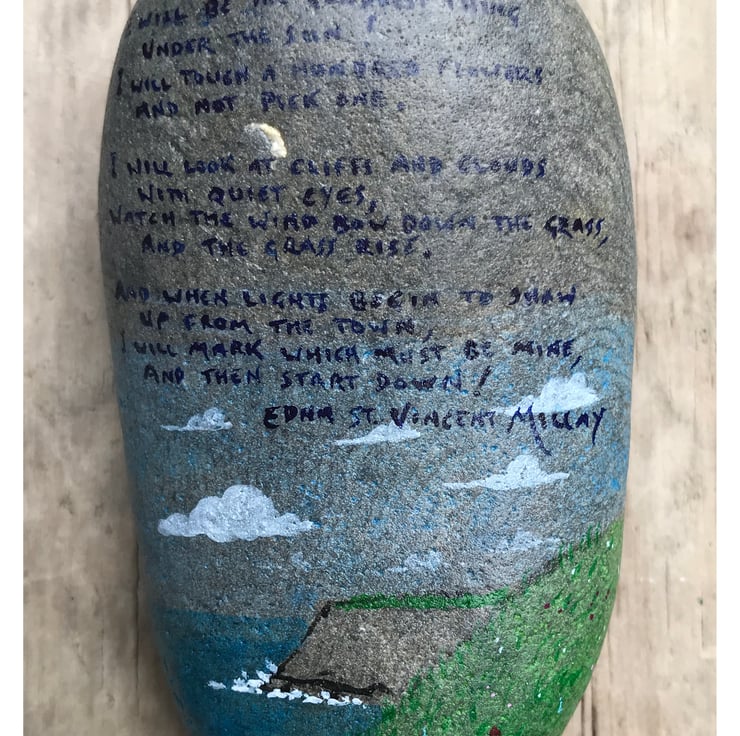 I WILL BE THE GLADDEST THING
UNDER THE SUN!
I WILL TOUCH A HUNDRED FLOWERS
AND NOT PICK ONE.
I WILL LOOK AT CLIFFS AND CLOUDS
WITH QUIET EYES,
WATCH THE WIND BOW DOWN THE GRASS,
AND THE GRASS RISE.
AND WHEN LIGHTS BEGIN TO SHOW
UP FROM THE TOWN,
I WILL MARK WHICH MUST BE MINE,
AND THEN START DOWN!
EDNA ST. VINCENT MILLAY